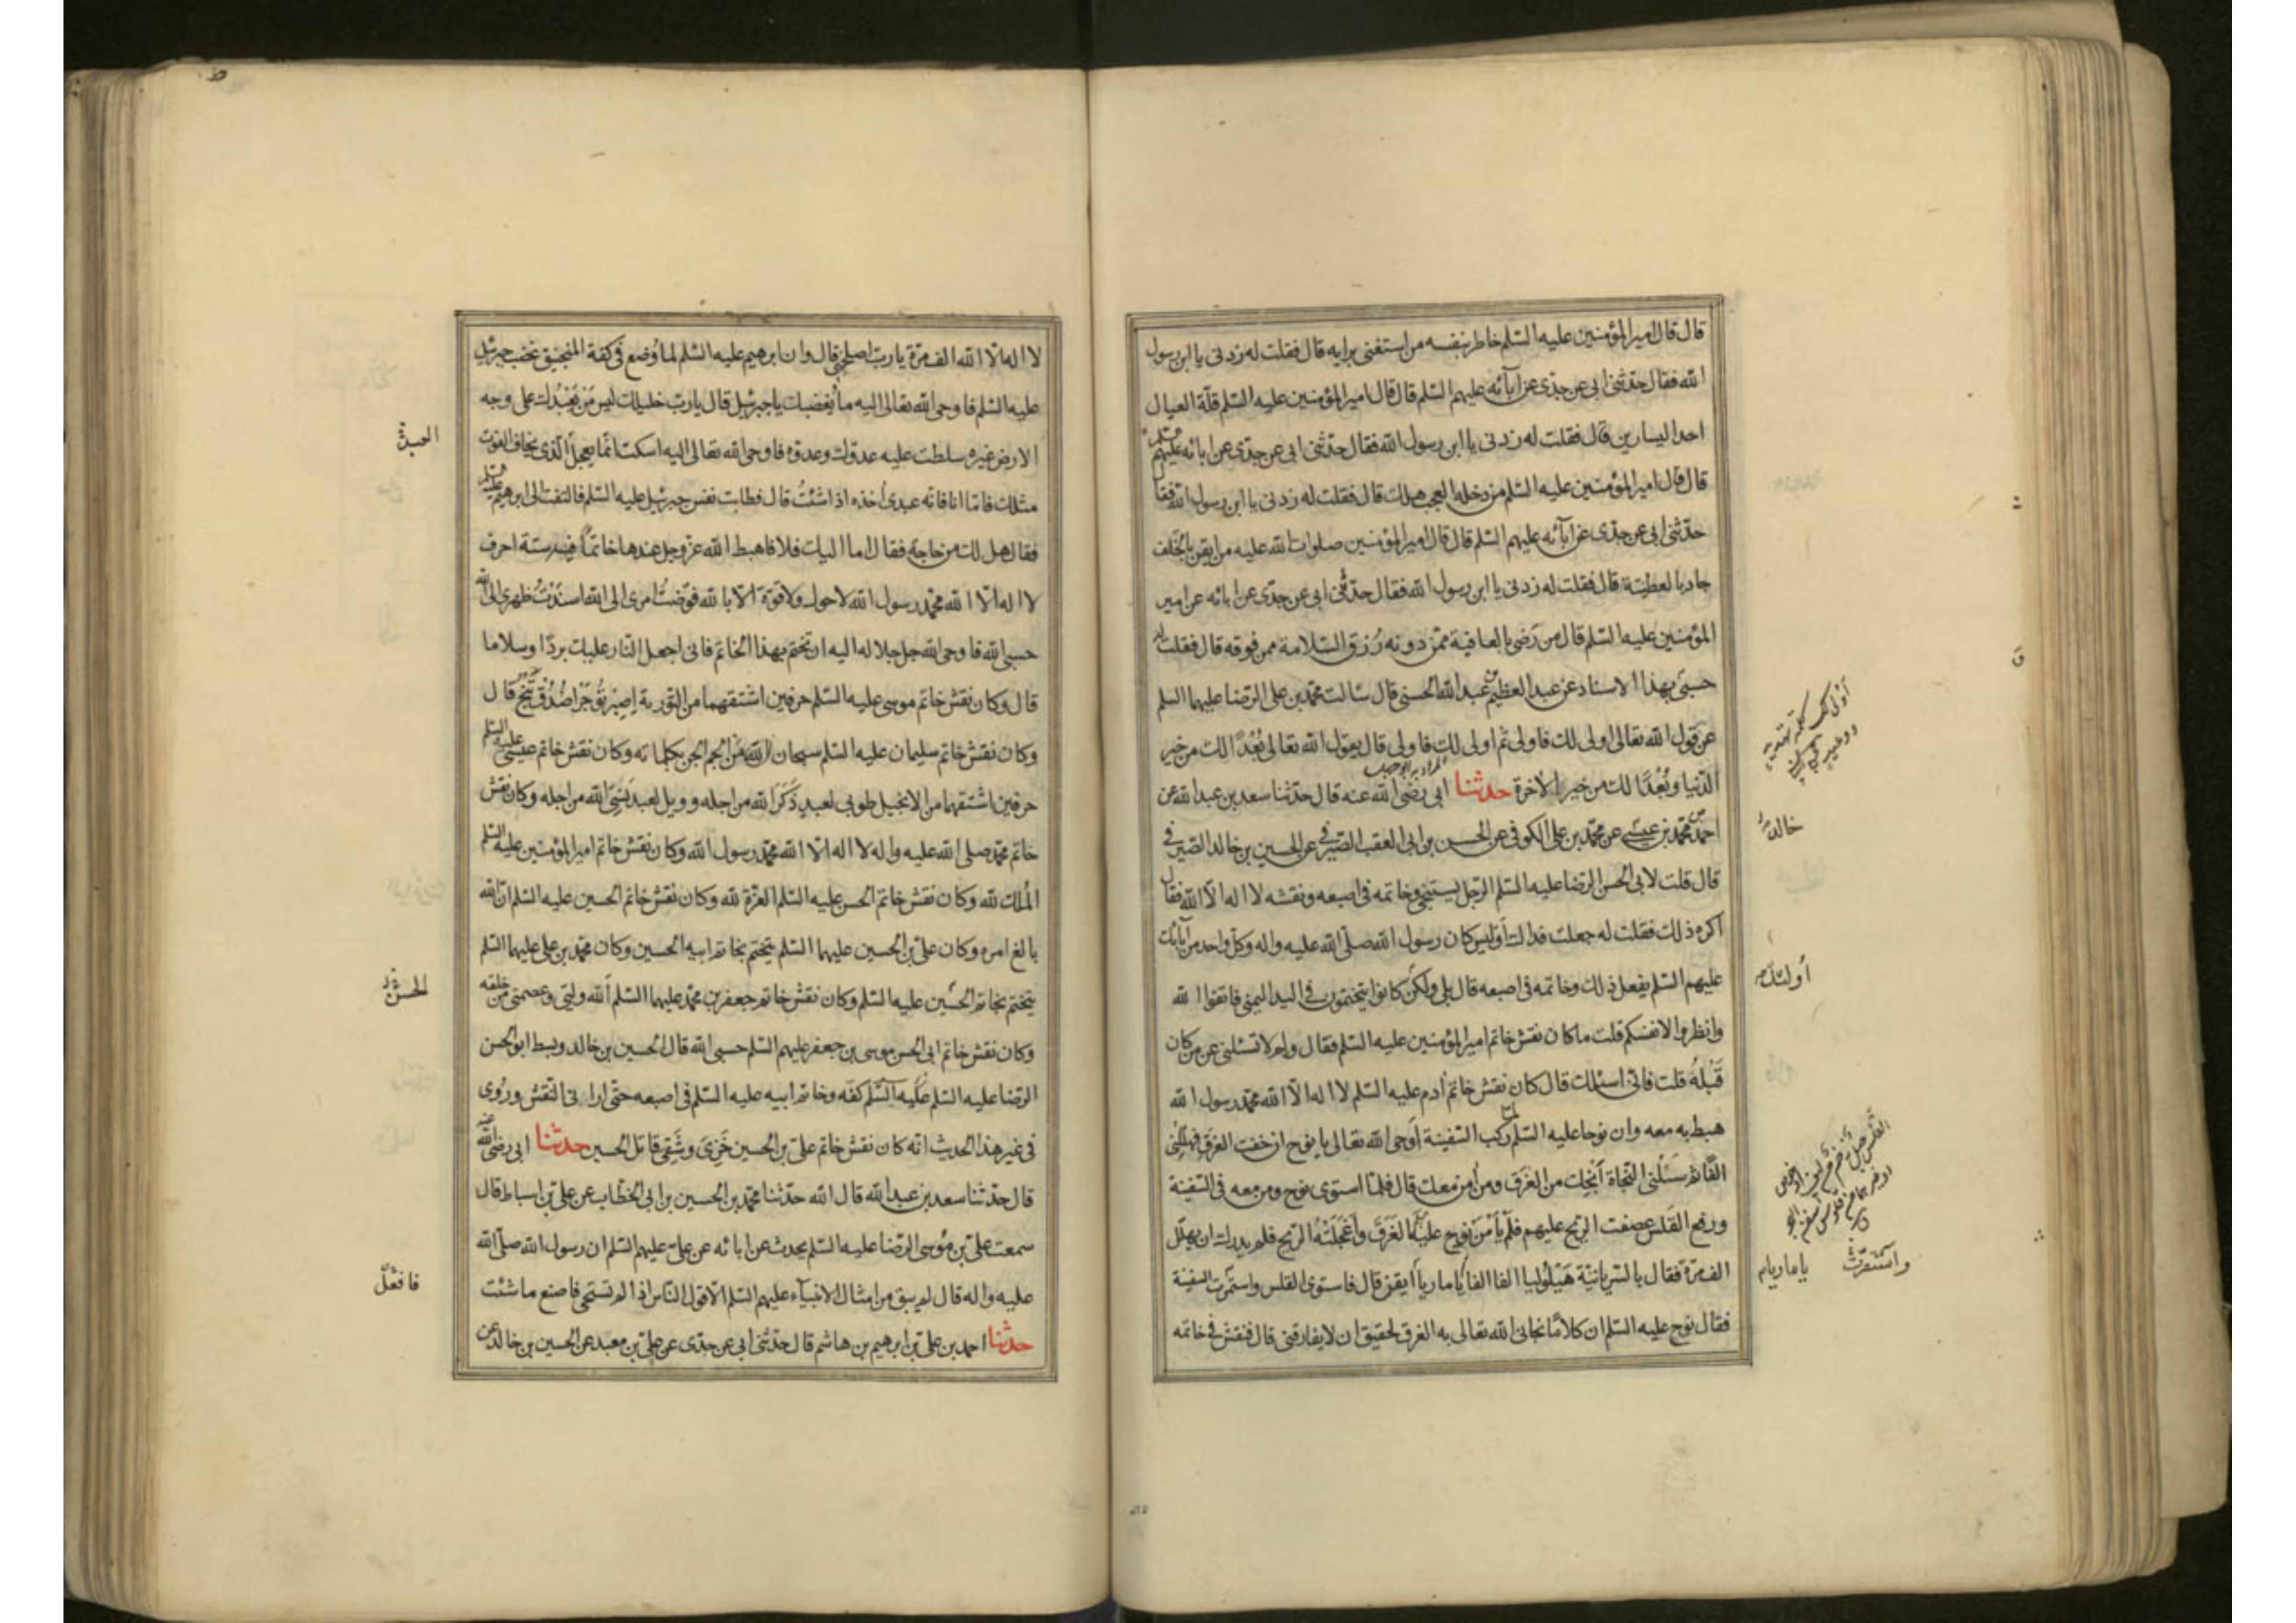 قال قال امير المؤمنين عليه السلم خاطر بنفسه من استغنى برايه قال فقلت له زدنى يا ابن رسول
الله فقال حدثنى ابى عن جدى عن آبائه عليهم السلم قال قال امير المؤمنين عليه السلم قلة العيال
احد اليسارين قال فقلت له زدنى يا ابن رسول الله فقال حدثنى ابى عن جدى عن ابائه عليهم السلم
قال قال امير المؤمنين عليه السلم من دخله العجب هلك قال فقلت له زدنى يا ابن رسول الله فقال
حدثنى ابى عن جدى عن آبائه عليهم السلم قال قال امير المؤمنين صلوات الله عليه من ايقن بالخلف
جاد بالعطية قال فقلت له زدنى يا ابن رسول الله فقال حدثنى ابى عن جدى عن ابائه عن امير
المؤمنين عليه السلم قال من رضى بالعافية ممن دونه رزق السلامة ممن فوقه قال فقلت له
حسبى بهذا الاسناد عن عبد العظيم بن عبد الله الحسنى قال سالت محمد بن على الرضا عليهما السلم
عن قول الله تعالى اولى لك فاولى ثم اولى لك فاولى قال يقول الله تعالى بُعْدًا لك من خير
الدنيا وبُعْدًا لك من خير الاخرة حدثنا ابى رضى الله عنه قال حدثنا سعد بن عبد الله عن
احمد بن محمد بن عيسى عن محمد بن على الكوفى عن الحسن بن ابى العقب الصيرفى عن الحسين بن خالد الصيرفى
قال قلت لابى الحسن الرضا عليه السلم الرجل يستنجى وخاتمه فى اصبعه ونقشه لا اله الا الله فقال
اكره ذلك فقلت له جعلت فداك أوليس كان رسول الله صلى الله عليه واله وكل واحد من آبائك
عليهم السلم يفعل ذلك وخاتمه فى اصبعه قال بلى ولكن كانوا يتختمون فى اليد اليمنى فاتقوا الله
وانظروا لانفسكم قلت ما كان نقش خاتم امير المؤمنين عليه السلم فقال ولم لا تسئلنى عن من كان
قَبْلَهُ قلت فانى اسئلك قال كان نقش خاتم آدم عليه السلم لا اله الا الله محمد رسول الله
هبط به معه وان نوحا عليه السلم لما ركب السفينة أوحى الله تعالى يا نوح ان خفت الغرق فهللنى
الفا ثم سَلْنى النجاة أُنجك من الغَرَق ومن آمن معك قال فلما استوى نوح ومن معه فى السفينة
ورفع القَلس عصفت الريح عليهم فلم يأمن نوح عليه السلم الغَرَق وأعجلته الريح فلم يدرك ان يهلل
الف مرة فقال بالسريانية هَيْلُوليا الفا الفا يا ماريا أيقن قال فاستوى القلس واستمرت السفينة
فقال نوح عليه السلم ان كلاما نجانى الله تعالى به الغرق لحقيق ان لا يفارقنى قال فنقش فى خاتمه
خالد
يا ماريا
واستقرت
لا اله الا الله الف مرة يا رب اصلحنى قال وان ابرهيم عليه السلم لما وُضع فى كفة المنجنيق غضب جبرئيل
عليه السلم فاوحى الله تعالى اليه ما يُغضبك يا جبرئيل قال يا رب خليلك ليس مَنْ يَعْبُدك على وجه
الارض غيره سلطت عليه عدوك وعدوه فاوحى الله تعالى اليه اسكت انما يعجل الذى يخاف الفوت
مثلك فاما انا فانه عبدى آخذه اذا شئتُ قال فطابت نفس جبرئيل عليه السلم فالتفت الى ابرهيم عليه السلم
فقال هل لك من حاجة فقال اما اليك فلا فاهبط الله عز وجل عندها خاتماً فيه ستة احرف
لا اله الا الله محمد رسول الله لا حول ولا قوة الا بالله فوضتُ امرى الى الله اسندْتُ ظهرى الى الله
حسبى الله فاوحى الله جل جلاله اليه ان تختم بهذا الخاتم فانى اجعل النار عليك بردا وسلاما
قال وكان نقش خاتم موسى عليه السلم حرفين اشتقهما من التورية اِصبرْ تُؤجَرْ اُصْدُقْ تَنْجُ قال
وكان نقش خاتم سليمان عليه السلم سبحان الله مَنْ ألجم الجن بكلماته وكان نقش خاتم عيسى عليه السلم
حرفين اشتقهما من الانجيل طوبى لعبد ذُكَرَ الله من اجله وويل لعبد نُسِىَ الله من اجله وكان نقش
خاتم محمد صلى الله عليه واله لا اله الا الله محمد رسول الله وكان نقش خاتم امير المؤمنين عليه السلم
المُلك لله وكان نقش خاتم الحسن عليه السلم العزة لله وكان نقش خاتم الحسين عليه السلم ان الله
بالغ امره وكان على بن الحسين عليهما السلم يتختم بخاتم ابيه الحسين وكان محمد بن على عليهما السلم
يتختم بخاتم الحسين عليه السلم وكان نقش خاتم جعفر بن محمد عليهما السلم الله وليى وعصمتى من خلقه
وكان نقش خاتم ابى الحسن موسى بن جعفر عليهم السلم حسبى الله قال الحسين بن خالد وبسط ابو الحسن
الرضا عليه السلم عليه السلم كفه وخاتم ابيه عليه السلم فى اصبعه حتى ارانى النقش وروى
فى غير هذا الحديث انه كان نقش خاتم على بن الحسين خَزِىَ وشَقِى قاتل الحسين حدثنا ابى رضى الله عنه
قال حدثنا سعد بن عبد الله قال الله حدثنا محمد بن الحسين بن ابى الخطاب عن على بن اسباط قال
سمعت على بن موسى الرضا عليه السلم يحدث عن ابائه عن على عليهم السلم ان رسول الله صلى الله
عليه واله قال لم يبق من امثال الانبياء عليهم السلم الا قول الناس اذا لم تستحى فاصنع ما شئت
حدثنا احمد بن على بن ابرهيم بن هاشم قال حدثنى ابى عن جدى عن على بن معبد عن الحسين بن خالد عن
الحسن
فافعل